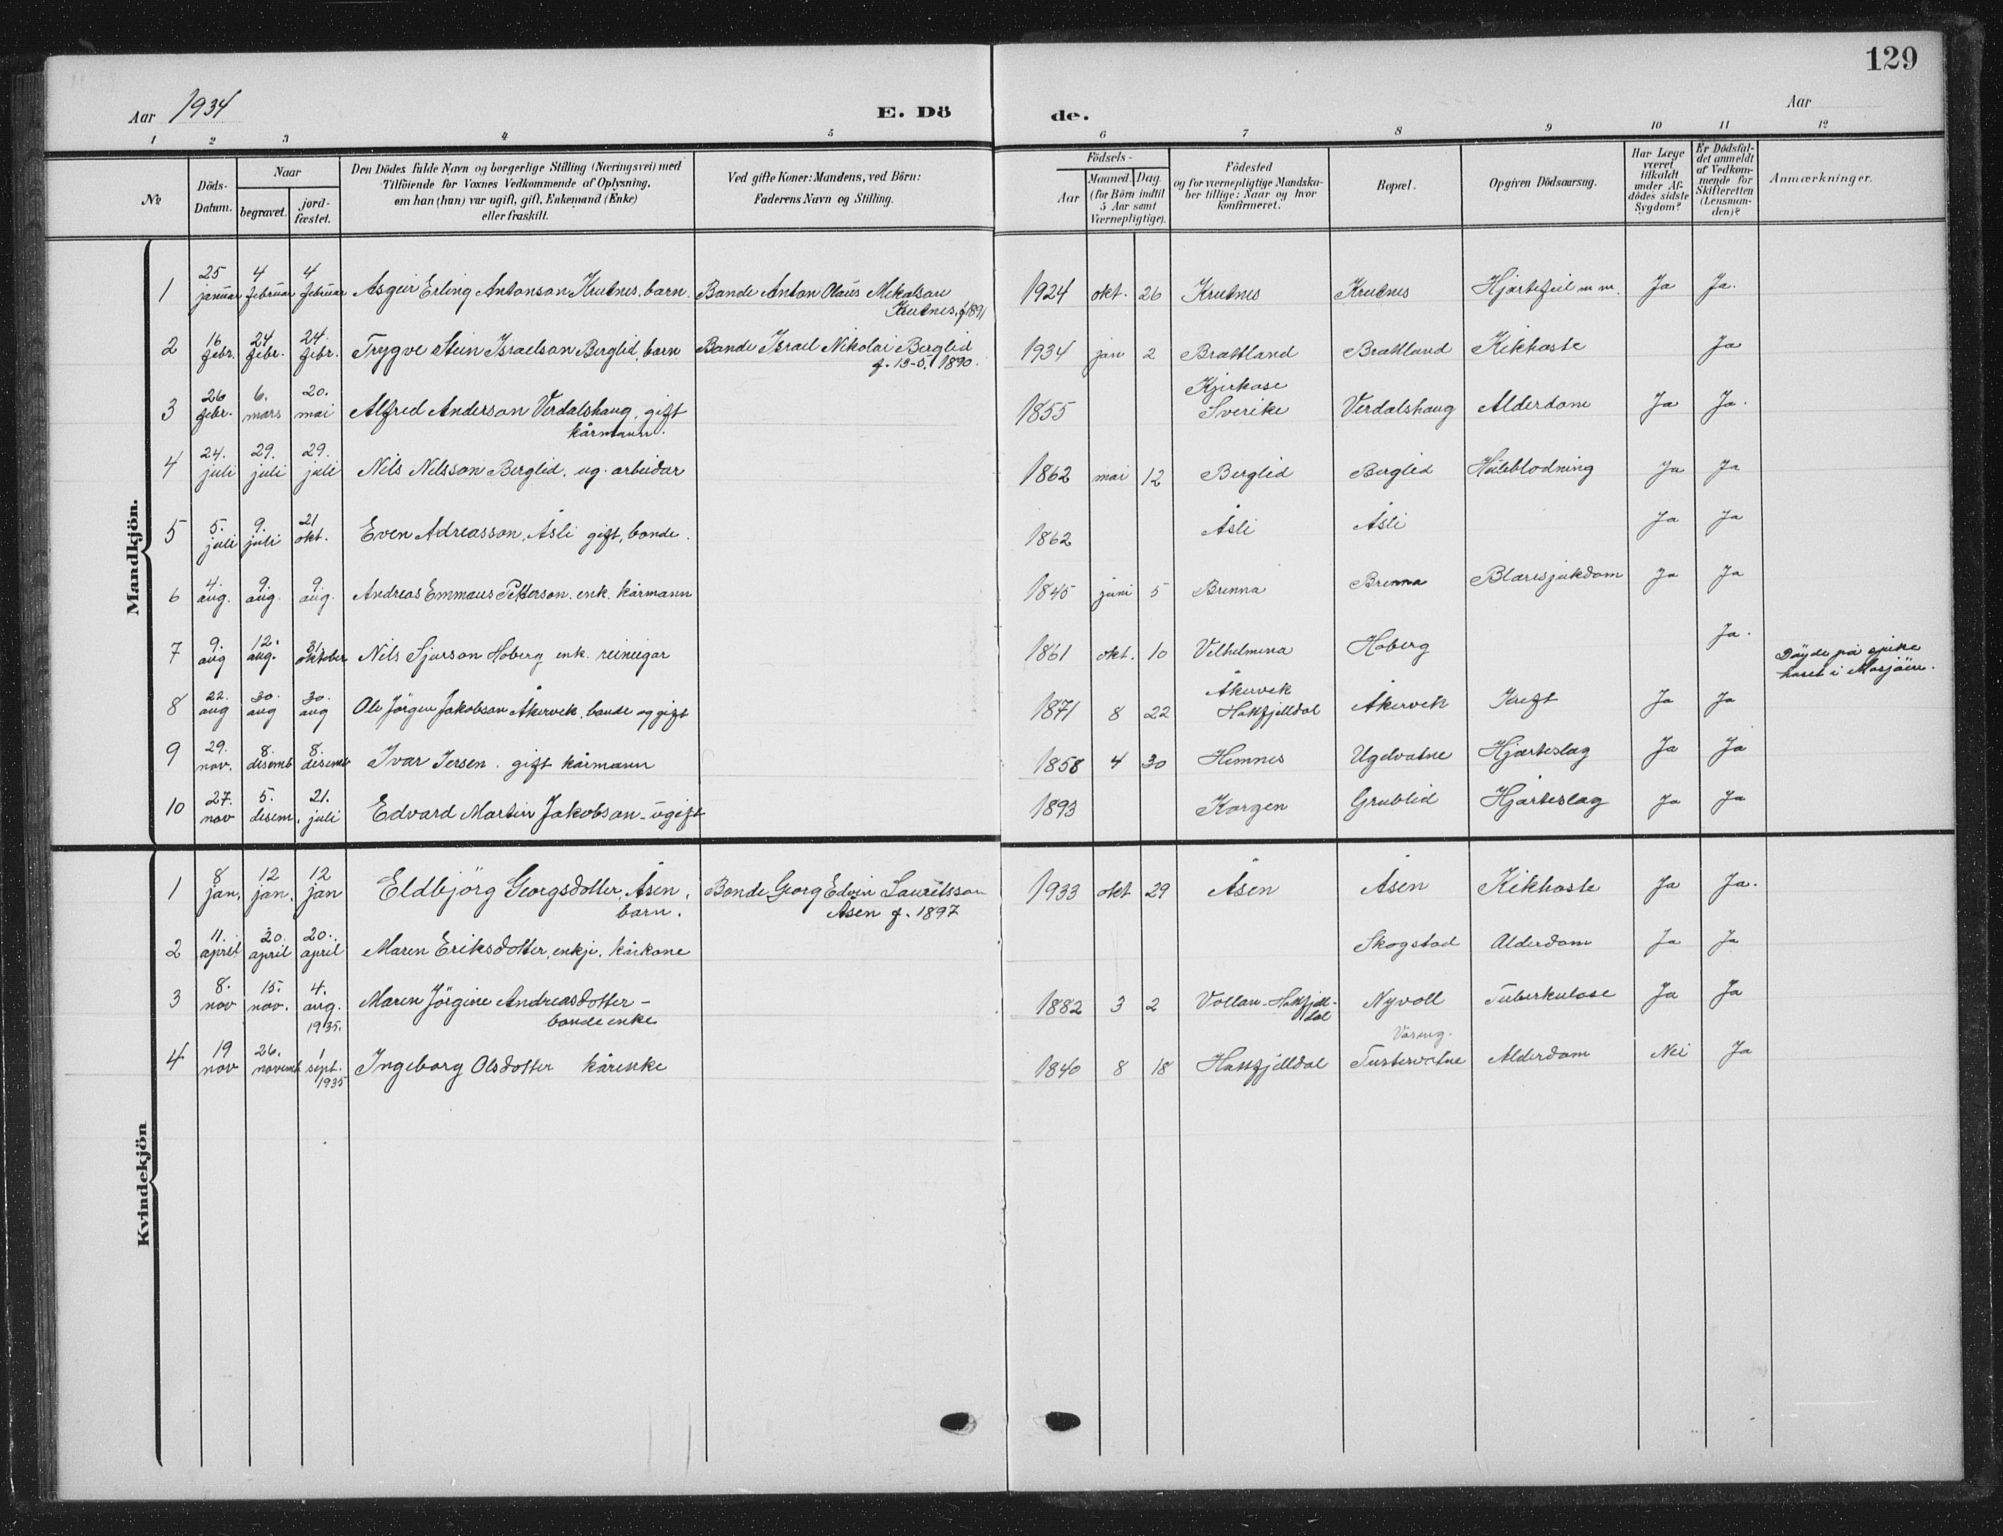 129
Aar 1934
E. Dö
de.
Aar
1 2 3 4 5 6 7 8 9 10 11 12
No
Döds-
Datum.
Naar
begravet.
jord-
fæstet.
Den Dödes fulde Navn og borgerlige Stilling (Næringsvei) med
Tilföiende for Voxnes Vedkommende af Oplysning,
om han (hun) var ugift, gift, Enkemand (Enke)
eller fraskilt.
Ved gifte Koner: Mandens, ved Börn:
Faderens Navn og Stilling.
Födsels-
Aar
Maaned. Dag
(for Börn indtil
5 Aar samt
Værnepligtige).
Födested
og for værnepligtige Mandska-
ber tillige: Naar og hvor
konfirmeret.
Bopæl.
Opgiven Dödsaarsag.
Har Læge
været
tilkaldt
under Af-
dödes sidste
Sygdom?
Er Dödsfal-
det anmeldt
af Vedkom-
mende for
Skifteretten
(Lensman-
den)?
Anmærkninger.
Mandkjön.
1 25 januar 4 februar 4 februar Asgeir Erling Antonson Krutnes, barn. Bonde Anton Olaus Mikalson 1924 okt. 26 Krutnes Krutnes Hjartefeil m m. Ja Ja.
Krutnes, f 1891
2 16 febr. 24 febr. 24. febr. Trygve Stein Israelson Berglid, barn Bonde Israel Nikolai Berglid 1934 jan 2 Brattland Brattland Kikhoste Ja
f. 13-5. 1890.
3 26 febr. 6. mars 20. mai Alfred Anderson Verdalshaug, gift 1855 Sverike Verdalshaug Alderdom Ja Ja.
kårmann.
4 24. juli 29. juli 29. juli Nils Nilsson Berglid. ug. arbeidar 1862 mai 12 Berglid Berglid Ja Ja
5 5. juli 9. juli 21 okt. Even Adreasson, Åsli gift, bonde. 1862 Åsli Åsli Ja Ja
6 4. aug. 9. aug. 9. aug. Andreas Emmaus Petterson. enk. kårmann 1845 juni 5 Brenna Brenna Blæresjukdom Ja Ja
7 9. aug 12. aug. 31 oktober Nils Sjurson Hoberg enk. reineigar 1861 okt. 10 Vilhelmina Hoberg Ja.
Döyde på sjuke
huset i Mosjöen.
8 22. aug 30. aug 30. aug Ole Jörgen Jakobson Åkervik. bonde og gift 1871 8 22 Åkervik Hattfjelldal Åkervik Kreft Ja Ja
9 29. nov. 8. desemb 8. desemb Ivar Iversen. gift kårmann 1858 4 30 Hemnes Ugelvatne Hjarteslag Ja Ja
10 27. nov 5. desem. 21. juli Edvard Martin Jakobson - ugift 1893 Korgen Grublid Hjarteslag Ja Ja
Kvindekjön
1 8 jan, 12 jan. 12 jan Eldbjörg Georgsdotter, Åsen, Bonde Georg Edvin Lauritsson 1933 okt 29 Åsen Åsen Kikhoste Ja Ja.
barn. Åsen f. 1897
2 11. april 20. april 20. april Maren Eriksdotter, enkje. kårkone Skogstad Alderdom Ja Ja
3 8. nov 15. nov. 4. aug. 1935. Maren Jörgine Andreasdotter - 1882 3 2 Vollan - Hattfjell-dal Nyvoll Tuberkulose Ja Ja
bonde enke
4 19 nov 26. novemb 1 sept. 1935 Ingeborg Olsdotter kårenke 1840 8 18 Hattfjelldal Tustervatne Alderdom Nei Ja